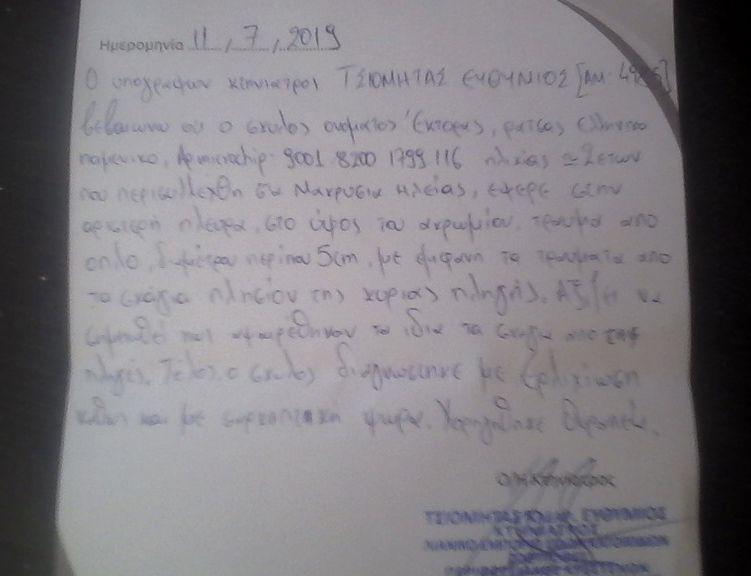 Ημερομηνία 11, 7, 2019
Ο υπογραφων κτηνιατρος ΤΣΙΟΜΗΤΑΣ ΕΥΘΥΜΙΟΣ [ΑΜ: 49
βεβαιωνω οτι ο σκυλος ονοματος Έκτορας, ρατσας ελληνικο
ποιμενικο, Αρ microchip: 9001 8200 1799 116 ηλικίας ≃ 2 ετων
που περισυλλεχθη στη Μακρυσια Ηλείας, εφερε στην
αριστερή πλευρα, στο ύψος του ακρωμίου, τραυμα απο
οπλο, διαμέτρου περίπου 5cm, με εμφανη τα τραυματα απο
τα σκάγια πλησίον της κυριας πληγής. Αξίζει να
σημειωθεί πως αφαιρέθηκαν τα ιδια τα σκαγια απο τις
πληγές. Τέλος, ο σκυλος διαγνωστηκε με Ερλιχίωση
καθως και με σαρκοπτικη ψωρα. Χορηγήθηκε θεραπεία.
Ο/Η Κτηνίατρος
ΤΣΙΟΜΗΤΑΣ ΕΥΘΥΜΙΟΣ
ΚΤΗΝΙΑΤΡΟΣ